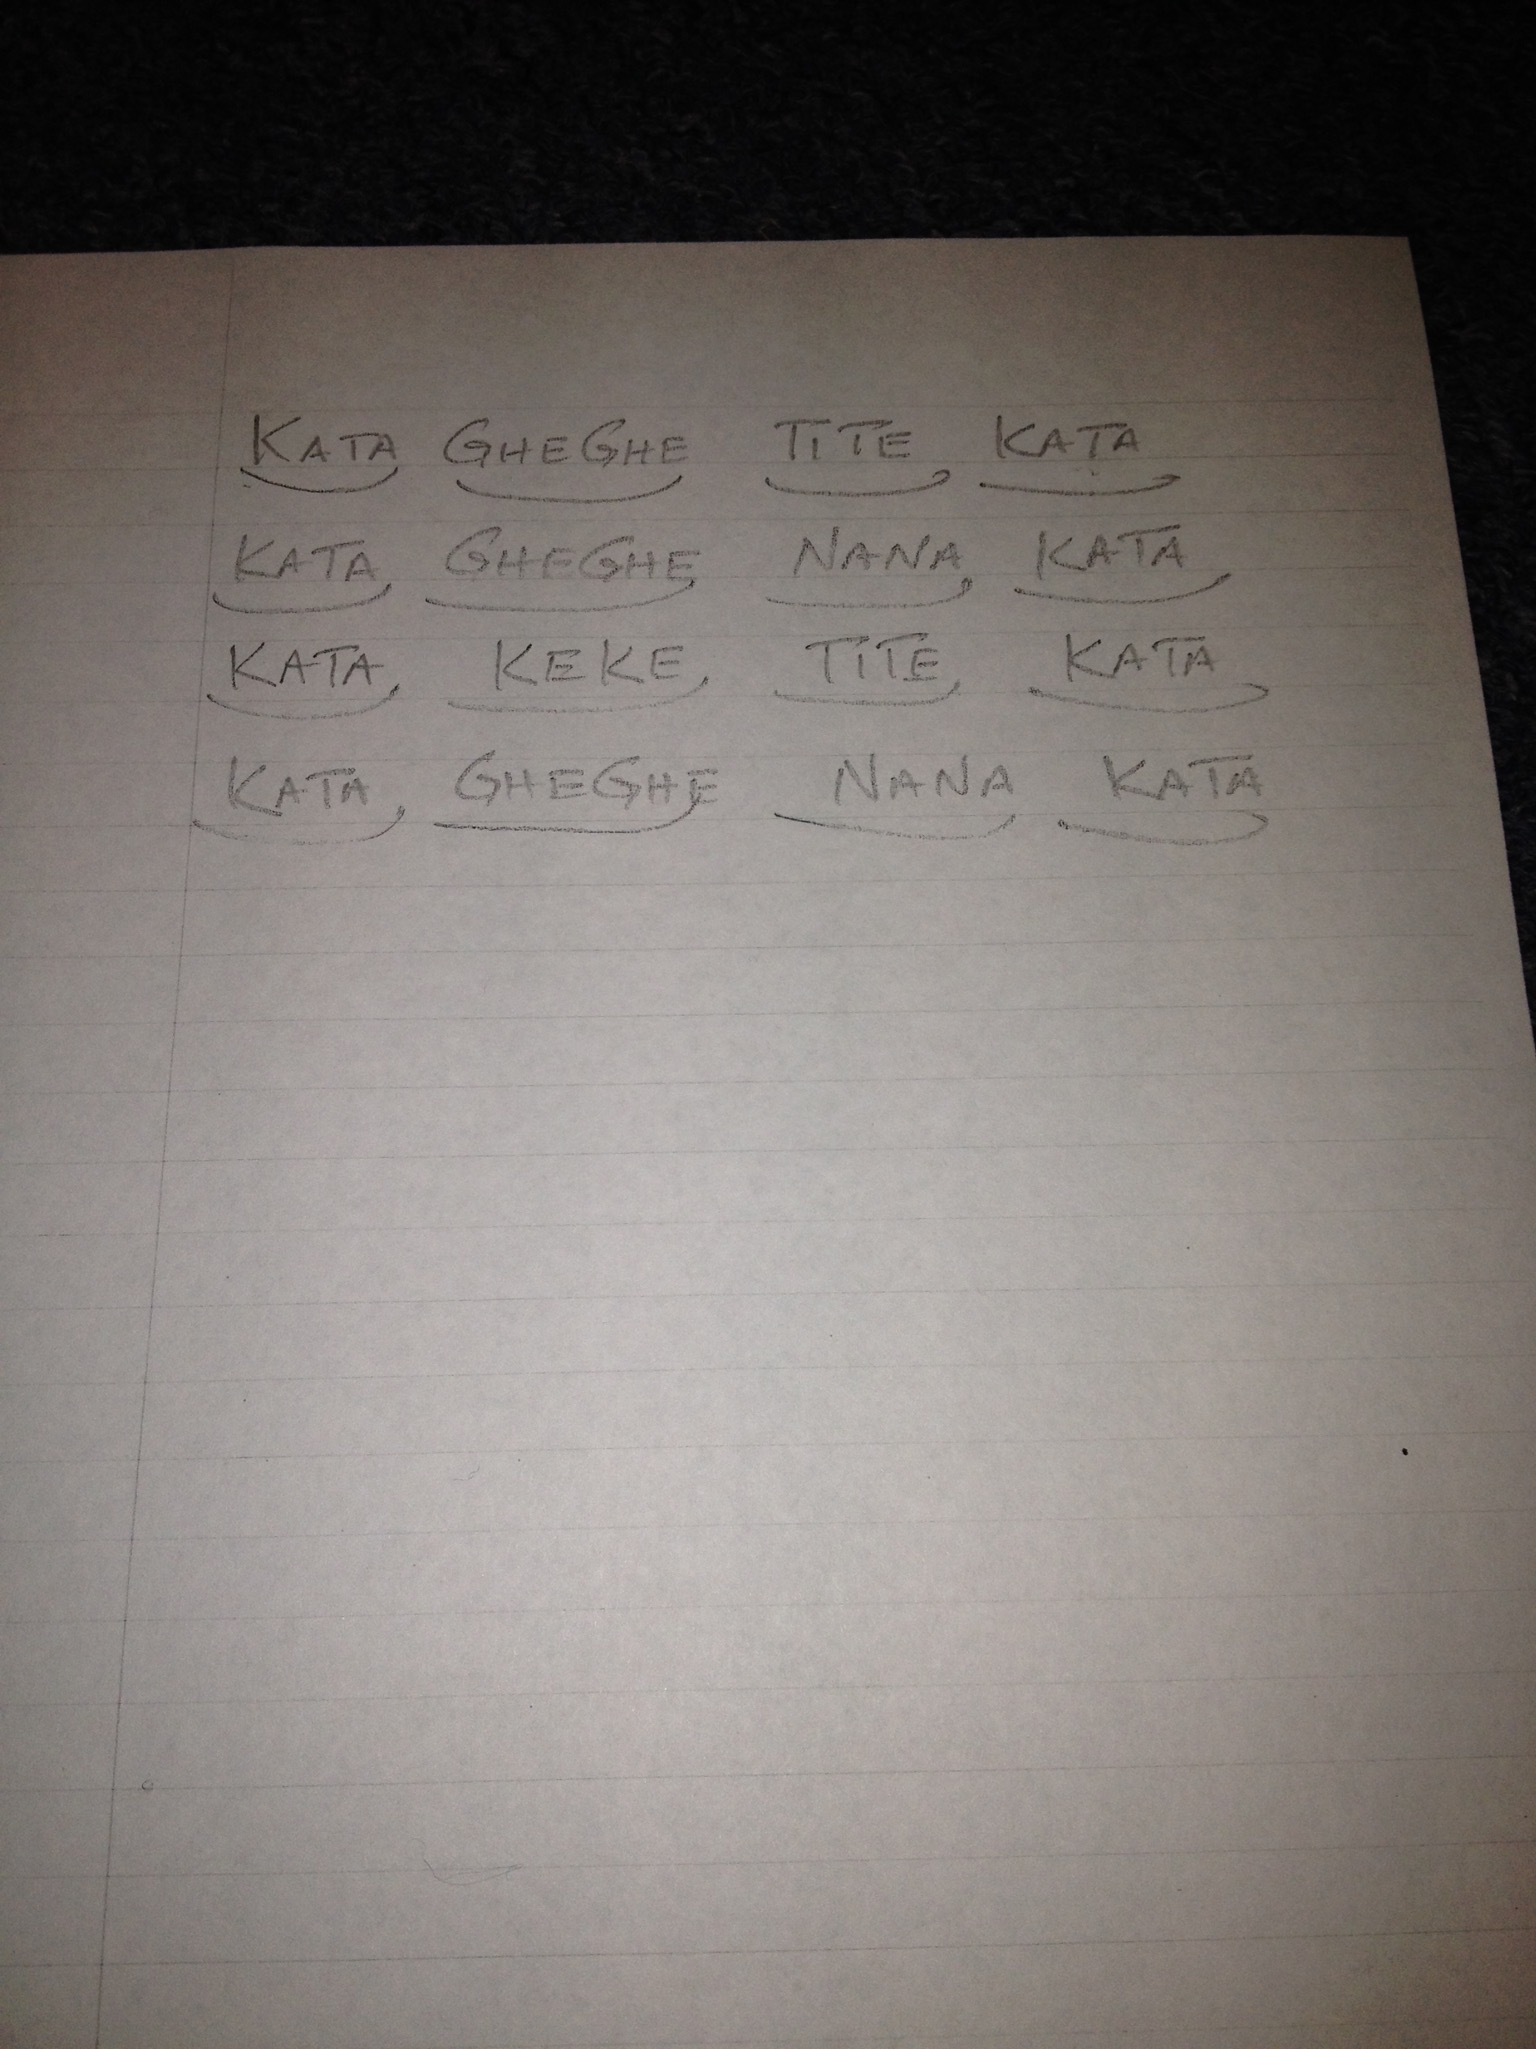 KATA GHEGHE TITE KATA
KATA GHEGHE NANA KATA
KATA KEKE TITE KATA
KATA GHEGHE NANA KATA